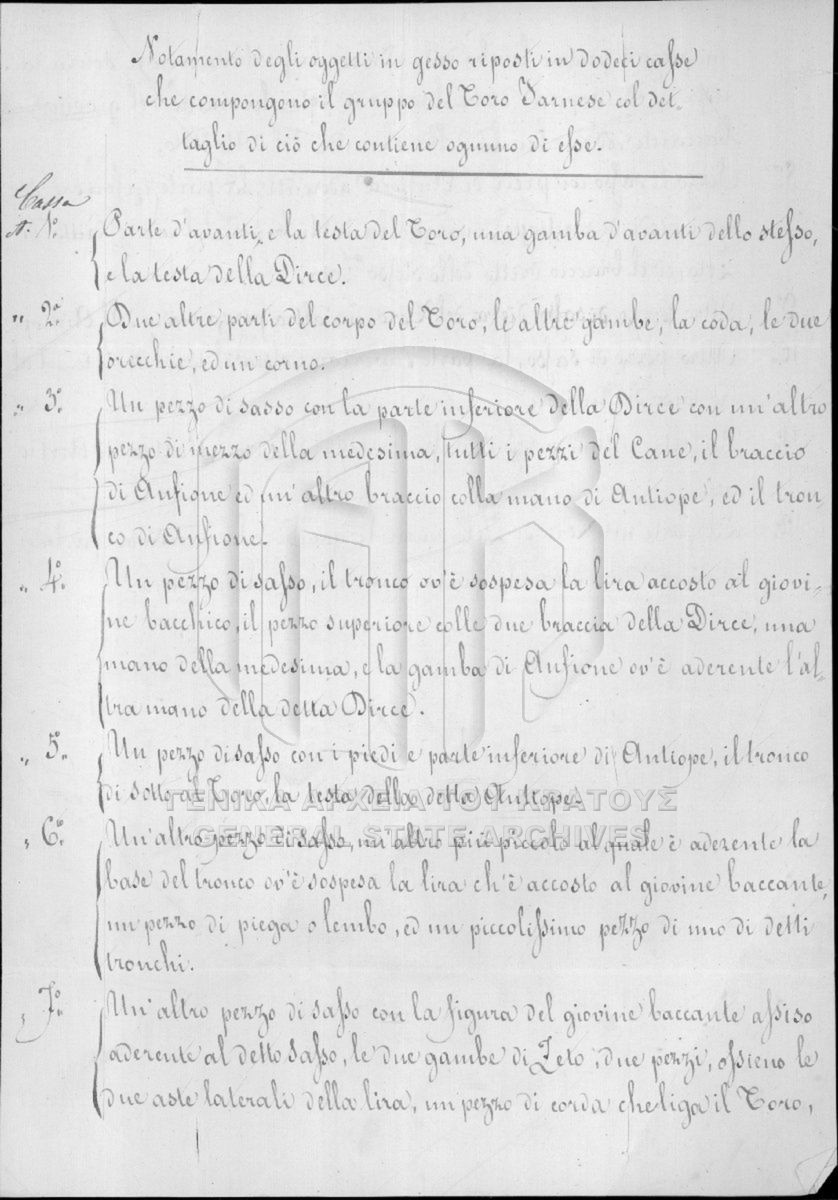 Notamento degli oggetti in gesso riposti in dodeci casse
che compongono il gruppo del Toro Farnese col det-
taglio di ciò che contiene ognuno di esse.
Cassa
N. 1º. Parte d'avanti, e la testa del Toro, una gamba d'avanti dello stesso,
e la testa della Dirce.
" 2º Due altre parti del corpo del Toro, le altre gambe, la coda, le due
orecchie, ed un corno.
" 3º. Un pezzo di sasso con la parte inferiore della Dirce con un'altro
pezzo di mezzo della medesima, tutti i pezzi del Cane, il braccio
di Anfione ed un'altro braccio colla mano di Antiope, ed il tron-
co di Anfione.
" 4º. Un pezzo di sasso, il tronco ov'è sospesa la lira accosto al giovi-
ne bacchico, il pezzo superiore colle due braccia della Dirce, una
mano della medesima, e la gamba di Anfione ov'è aderente l'al-
tra mano della detta Dirce.
" 5º. Un pezzo di sasso con i piedi e parte inferiore di Antiope, il tronco
di sotto al Toro, la testa della detta Antiope.
ΓΕΝΙΚΑ ΑΡΧΕΙΑ ΤΟΥ ΚΡΑΤΟΥΣ
GENERAL STATE ARCHIVES
" 6º. Un'altro pezzo di sasso, un'altro più piccolo al quale è aderente la
base del tronco ov'è sospesa la lira ch'è accosto al giovine baccante,
un pezzo di piega o lembo, ed un piccolissimo pezzo di uno di detti
tronchi.
" 7º. Un'altro pezzo di sasso con la figura del giovine baccante assiso
aderente al detto sasso, le due gambe di Zeto, due pezzi, ossieno le
due aste laterali della lira, un pezzo di corda che liga il Toro,